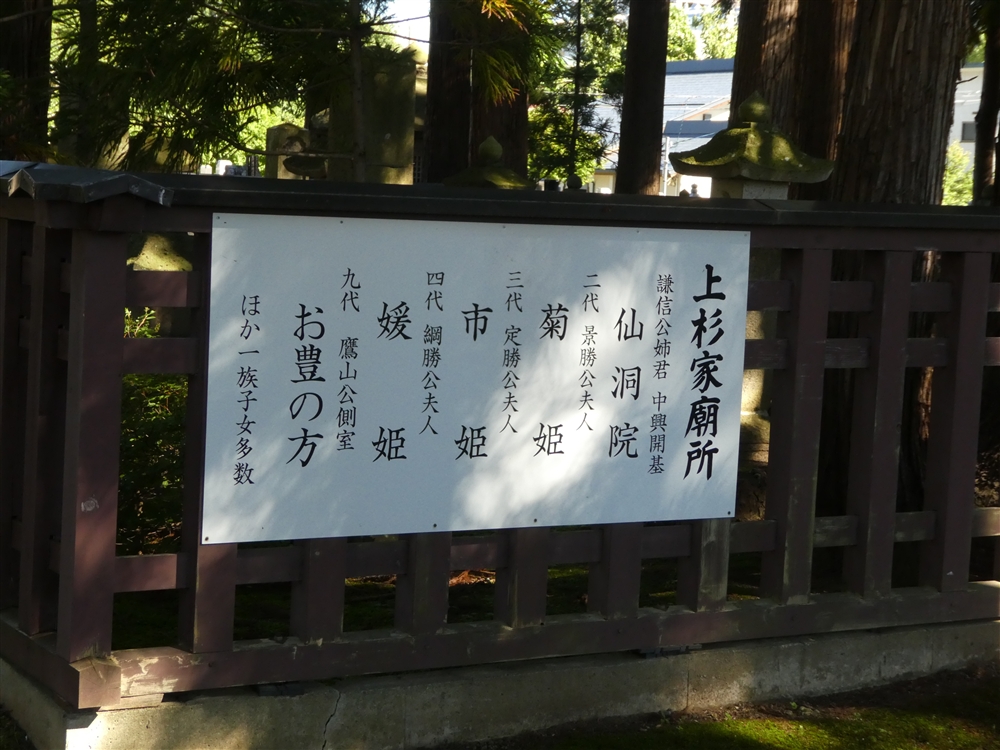 上杉家廟所
謙信公姉君 中興開基
仙洞院
二代 景勝公夫人
菊姫
三代 定勝公夫人
市姫
四代 綱勝公夫人
媛姫
九代 鷹山公側室
お豊の方
ほか一族子女多数